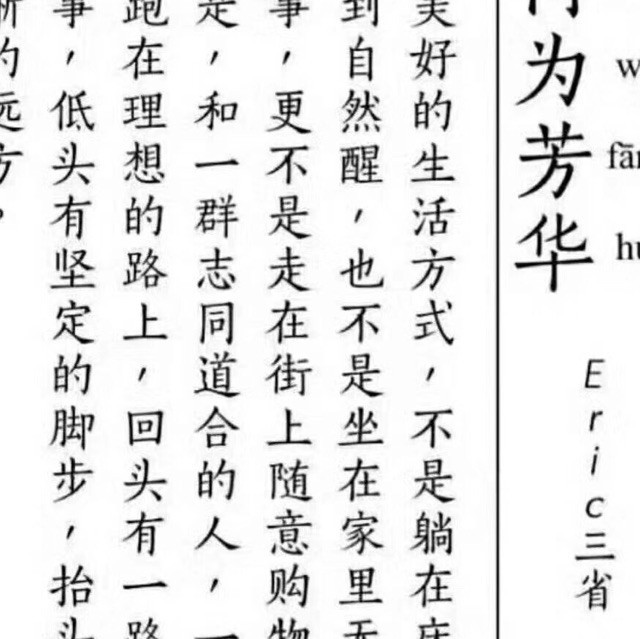 为芳华
Eric三省
美好的生活方式，不是躺在床
到自然醒，也不是坐在家里无
事，更不是走在街上随意购物
是，和一群志同道合的人，一
跑在理想的路上，回头有一路
事，低头有坚定的脚步，抬头
的远方。